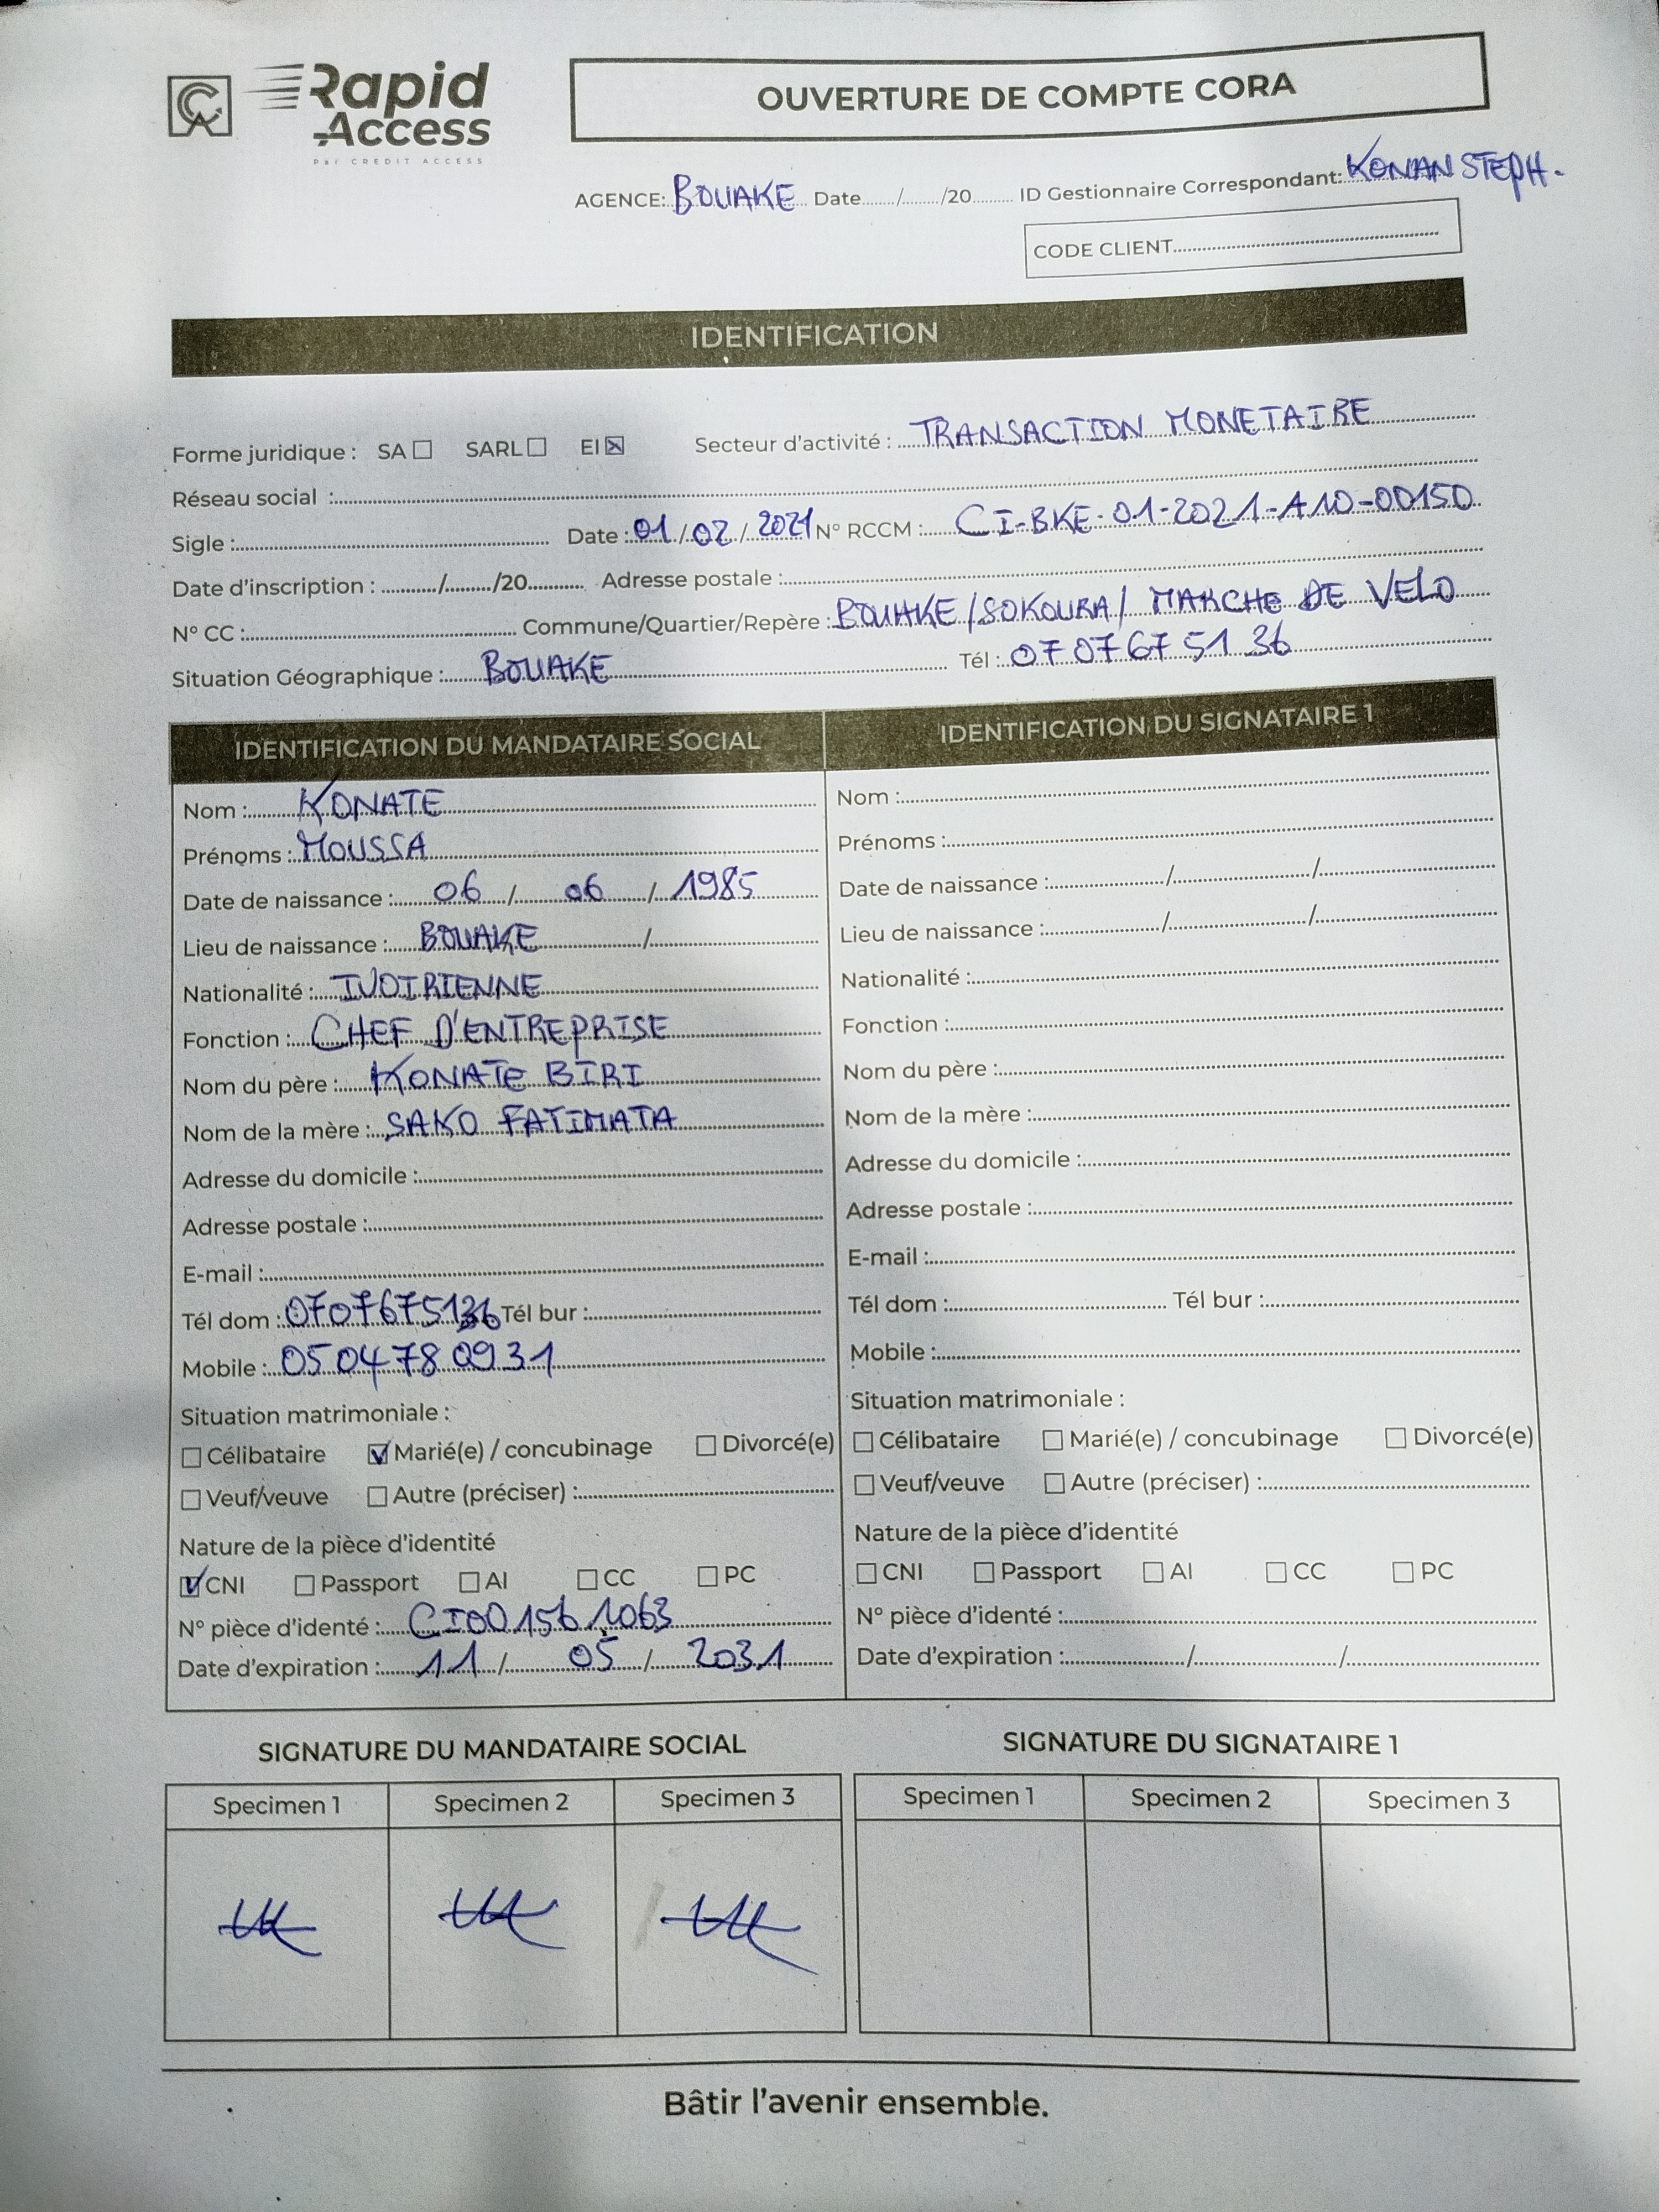 CA Rapid Access
Par CREDIT ACCESS
OUVERTURE DE COMPTE CORA
AGENCE: BOUAKE Date......./......./20......... ID Gestionnaire Correspondant: KONAN STEPH.
CODE CLIENT..........
IDENTIFICATION
Forme juridique : SA ☐ SARL ☐ EI ☒ Secteur d'activité : TRANSACTION MONETAIRE
Réseau social :..........
Sigle :.......... Date : 01 / 02 / 2021 N° RCCM : CI-BKE-01-2021-A10-00150
Date d'inscription : ........./......../20.......... Adresse postale :..........
N° CC :.......... Commune/Quartier/Repère : BOUAKE/SOKOURA/ MARCHE DE VELO
Situation Géographique : BOUAKE Tél : 07 07 67 51 36
IDENTIFICATION DU MANDATAIRE SOCIAL
Nom : KONATE
Prénoms : MOUSSA
Date de naissance : 06 / 06 / 1985
Lieu de naissance : BOUAKE /
Nationalité : IVOIRIENNE
Fonction : CHEF D'ENTREPRISE
Nom du père : KONATE BIRI
Nom de la mère : SAKO FATIMATA
Adresse du domicile :..........
Adresse postale :..........
E-mail :..........
Tél dom : 0707675136 Tél bur :..........
Mobile : 0504780931
Situation matrimoniale :
☐ Célibataire ☑ Marié(e) / concubinage ☐ Divorcé(e)
☐ Veuf/veuve ☐ Autre (préciser) :..........
Nature de la pièce d'identité
☑ CNI ☐ Passport ☐ AI ☐ CC ☐ PC
N° pièce d'identé : CI001561063
Date d'expiration : 11 / 05 / 2031
IDENTIFICATION DU SIGNATAIRE 1
Nom :..........
Prénoms :..........
Date de naissance :........../........../..........
Lieu de naissance :........../........../..........
Nationalité :..........
Fonction :..........
Nom du père :..........
Nom de la mère :..........
Adresse du domicile :..........
Adresse postale :..........
E-mail :..........
Tél dom :.......... Tél bur :..........
Mobile :..........
Situation matrimoniale :
☐ Célibataire ☐ Marié(e) / concubinage ☐ Divorcé(e)
☐ Veuf/veuve ☐ Autre (préciser) :..........
Nature de la pièce d'identité
☐ CNI ☐ Passport ☐ AI ☐ CC ☐ PC
N° pièce d'identé :..........
Date d'expiration :........../........../..........
SIGNATURE DU MANDATAIRE SOCIAL
Specimen 1 Specimen 2 Specimen 3
SIGNATURE DU SIGNATAIRE 1
Specimen 1 Specimen 2 Specimen 3
Bâtir l'avenir ensemble.